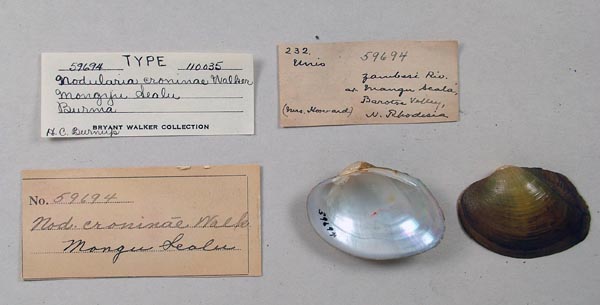 TYPE
59694 110035
Nodularia croninae Walker
Mongyu Lealu
Burma
BRYANT WALKER COLLECTION
H.C. Burnup
232. 59694
Unio
Zambesi Riv.
at Mangu Lealui
Barotse Valley,
(Mrs. Howard) N. Rhodesia
No. 59694
Nod. croninae Walk
Mongu Lealu
59694